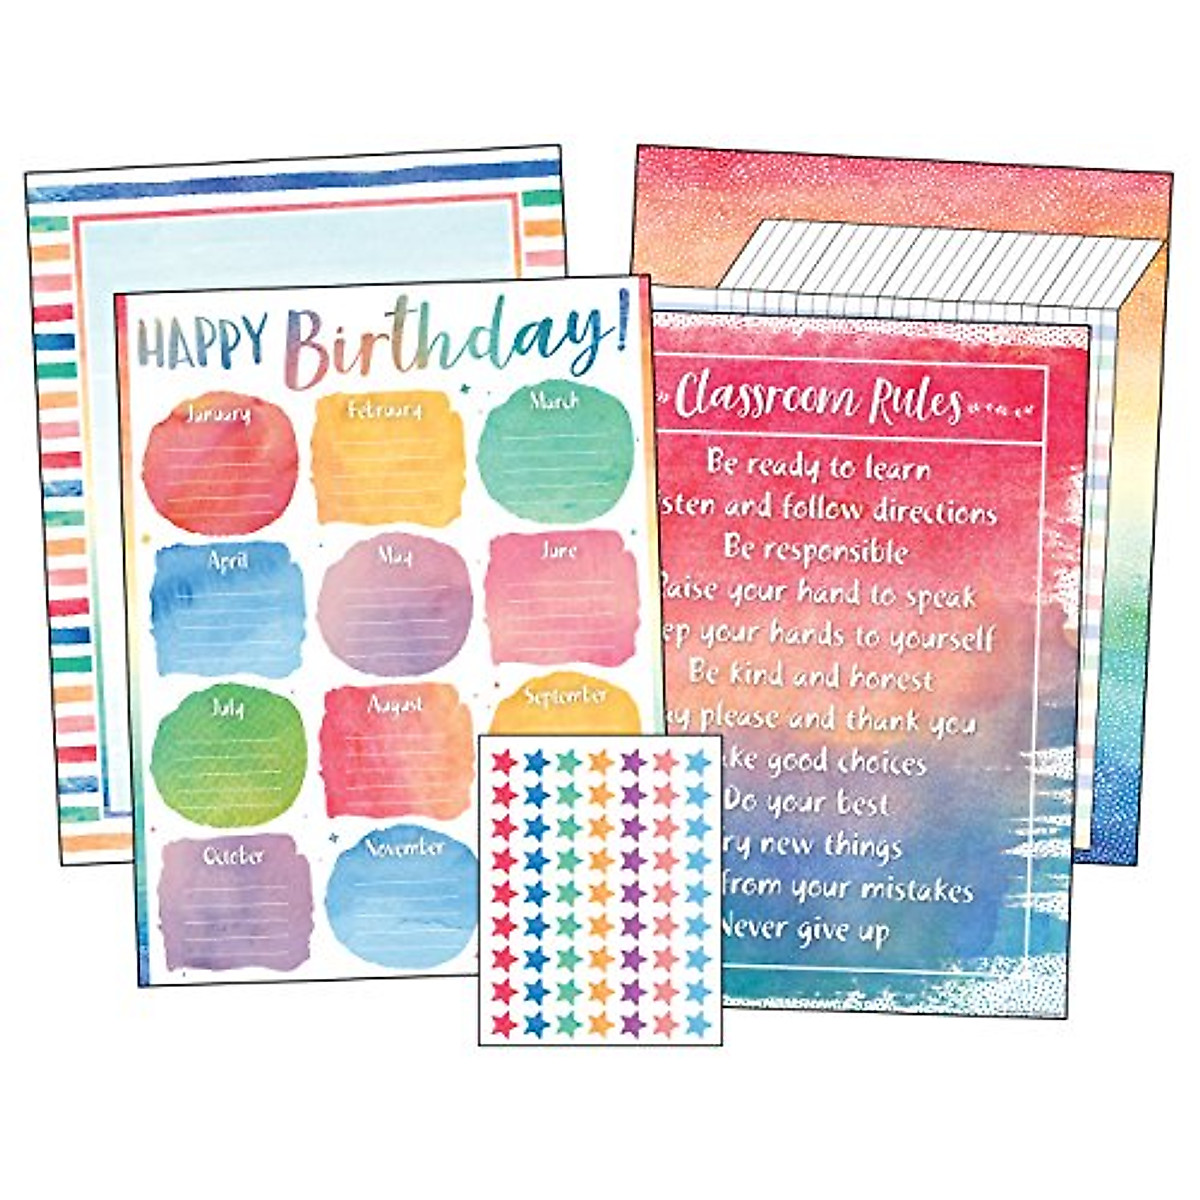 HAPPY Birthday!
January
February
March
April
May
June
July
August
September
October
November
Classroom Rules
Be ready to learn
sten and follow directions
Be responsible
aise your hand to speak
ep your hands to yourself
Be kind and honest
ay please and thank you
ke good choices
Do your best
ry new things
from your mistakes
Never give up